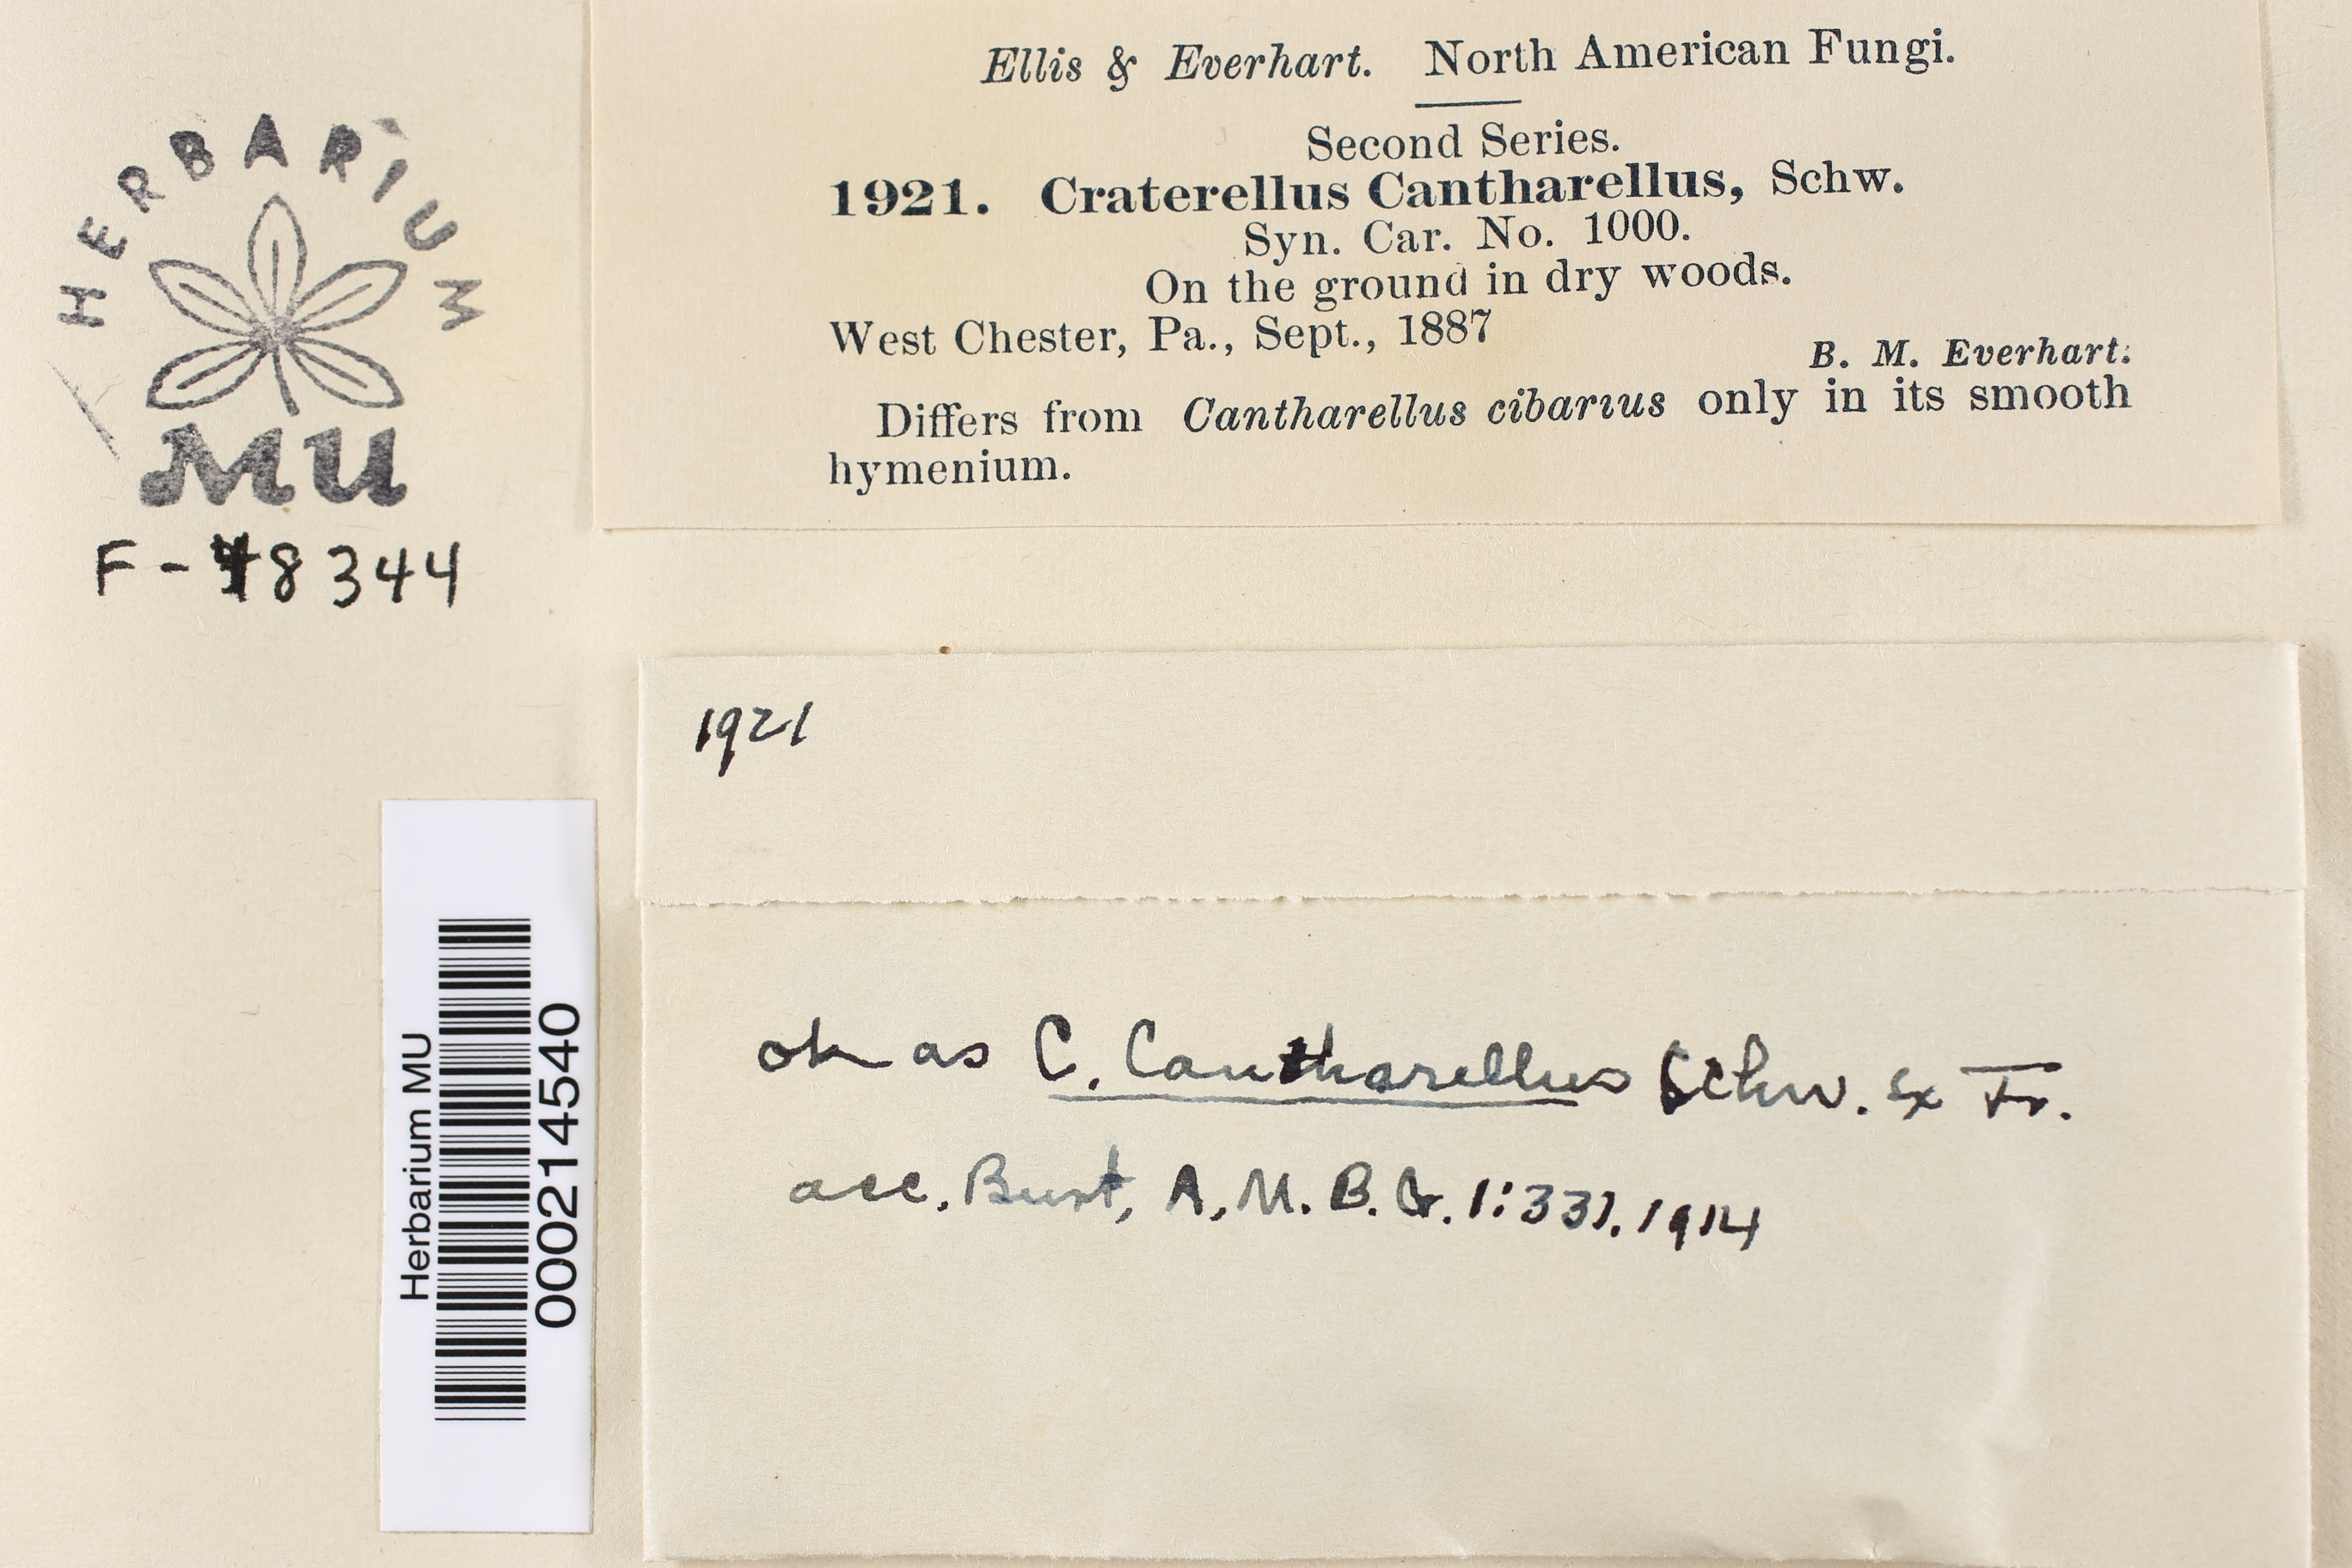 Ellis & Everhart. North American Fungi.
Second Series.
1921. Craterellus Cantharellus, Schw.
Syn. Car. No. 1000.
On the ground in dry woods.
West Chester, Pa., Sept., 1887
B. M. Everhart.
Differs from Cantharellus cibarius only in its smooth
hymenium.
HERBARIUM
MU
F-48344
1921
ok as C. Cantharellus Schw. ex Fr.
acc. Burt, A.M.B.G. 1:331. 1914
Herbarium MU
000214540